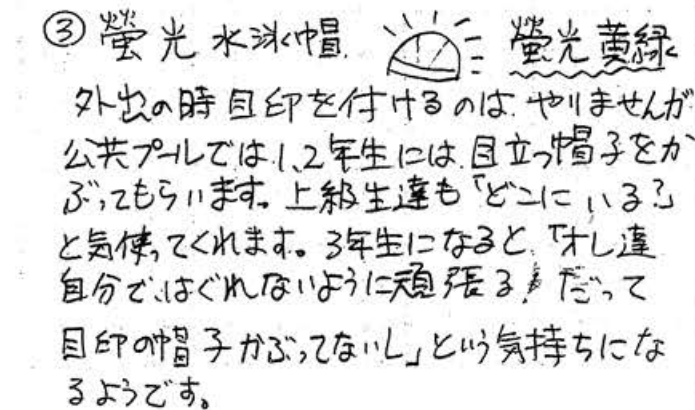 ③ 螢光水泳帽 螢光黄緑
外出の時目印を付けるのは、やりませんが
公共プールでは1、2年生には目立つ帽子をか
ぶってもらいます。上級生達も「どこにいる?」
と気使ってくれます。3年生になると、「オレ達
自分で、はぐれないように頑張る! だって
目印の帽子かぶってないし」という気持ちにな
るようです。